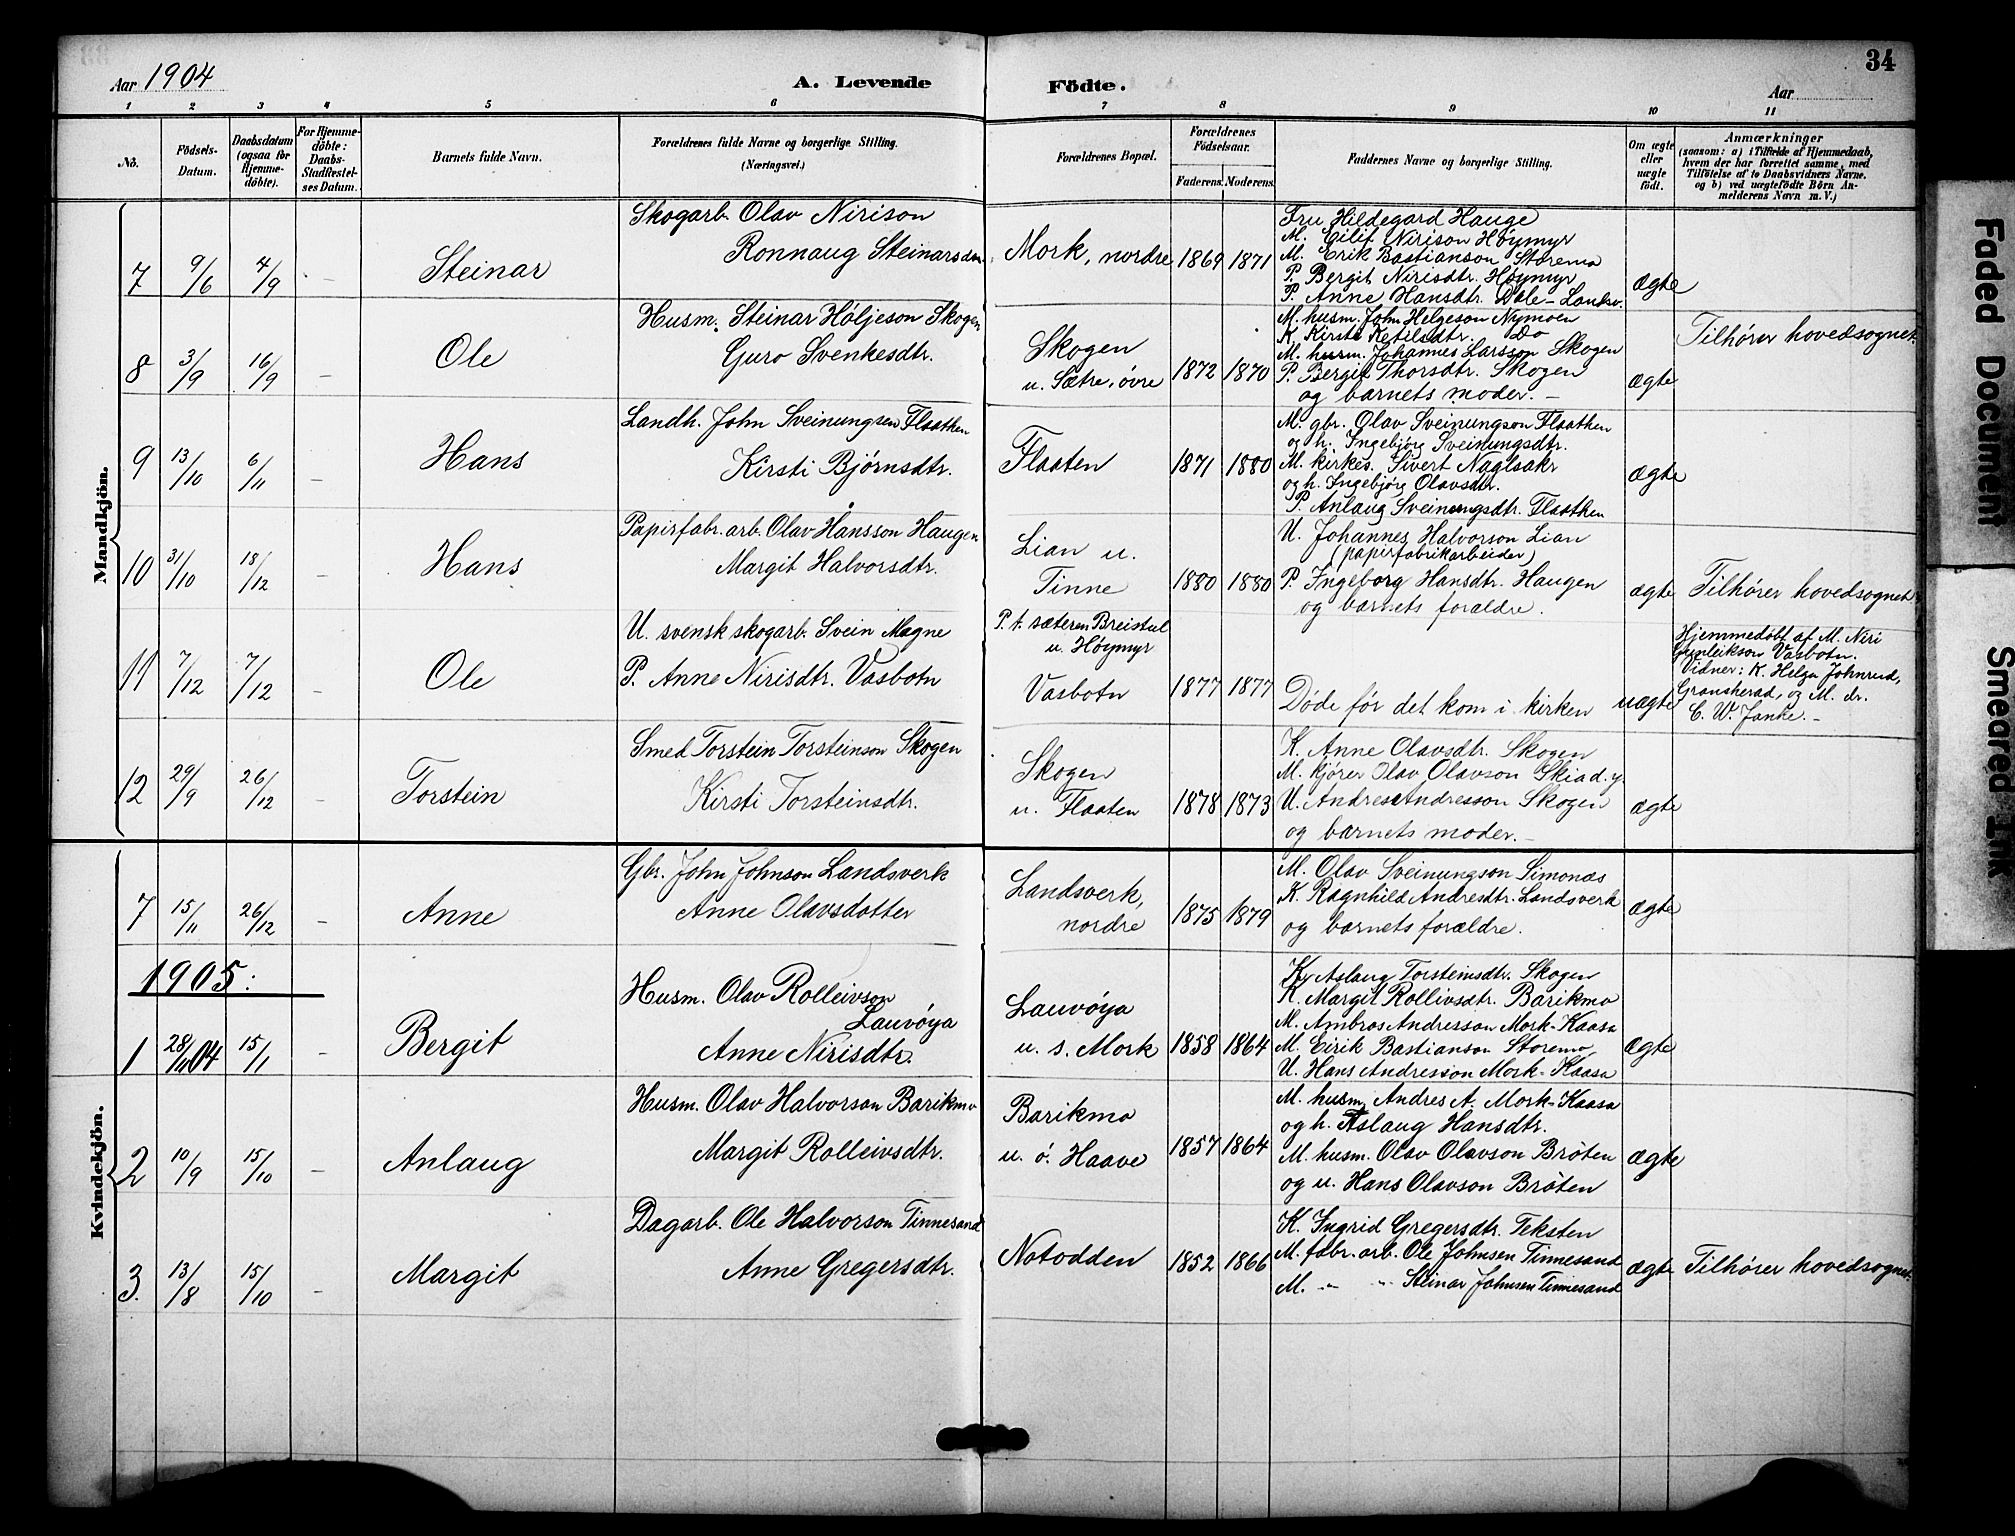 34
Aar 1904
A. Levende
Födte.
Aar
1 2 3 4 5 6 7 8 9 10 11
No.
Födsels-Datum.
Daabsdatum (ogsaa for Hjemme-döbte).
For Hjemme-döbte: Daabs-Stadfæstel-ses Datum.
Barnets fulde Navn.
Forældrenes fulde Navne og borgerlige Stilling.
(Næringsvei.)
Forældrenes Bopæl.
Forældrenes Födselsaar.
Faderens. Moderens.
Faddernes Navne og borgerlige Stilling.
Om ægte eller uægte födt.
Anmærkninger
(saasom: a) i Tilfælde af Hjemmedaab,
hvem der har forrettet samme, med
Tilföielse af to Daabsvidners Navne.
og b) ved uægtefödte Börn An-
melderens Navn m. V.)
Mandkjön.
7 9/6 4/9 – Steinar
Skogarb. Olav Nirison
Ronnaug Steinarsdtr.
Mork, nordre 1869 1871
Fru Hildegard Hauge
M. Eilif Nirison Høymyr
M. Erik Bastianson Storemo
P. Bergit Nirisdtr. Høymyr
P. Anne Hansdtr. Dale - Landsv.
ægte
8 3/9 16/9 – Ole
Husm. Steinar Høljeson Skogen
Guro Svenkesdtr.
Skogen
u. Sætre, øvre 1872 1870
M. husm. John Helgeson Nymoen
K. Kirsti Ketilsdtr. Do
M. husm. Johannes Larsson Skogen
P. Bergit Thorsdtr. Skogen
og barnets moder. –
ægte
Tilhører hovedsognet.
9 13/10 6/11 – Hans
Landh. John Sveinungsen Flaathen
Kirsti Bjørnsdtr.
Flaaten 1871 1880
M. gbr. Olav Sveinungson Flaathen
og h. Ingebjørg Sveinungsdtr.
M. kirkes. Sivert Naglsakr
og h. Ingebjørg Olavsdtr.
P. Anlaug Sveinungsdtr. Flaathen
ægte
10 31/10 18/12 – Hans
Papirfabr. arb. Olav Hansson Haugen
Margit Halvorsdtr.
Lian u.
Tinne 1880 1880
U. Johannes Halvorson Lian
(papirfabrikarbeider)
P. Ingeborg Hansdtr. Haugen
og barnets forældre.
ægte
Tilhører hovedsognet
11 7/12 7/12 – Ole
U. svensk skogarb. Svein Magne
P. Anne Nirisdtr. Vasbotn
P. t. sæteren Breistul
u. Høymyr
Vasbotn 1877 1877
Døde før det kom i kirken
uægte
Hjemmedøbt af M. Niri
Gunleikson Vasbotn.
Vidner: K. Helga Johnrud,
Gransherad, og M. dr.
C. W. Janke. –
12 29/9 26/12 – Torstein
Smed Torstein Torsteinson Skogen
Kirsti Torsteinsdtr.
Skogen
u. Flaaten 1878 1873
K. Anne Olavsdtr. Skogen
M. kjører Olav Olavson Skiad. y.
U. Andres Andresson Skogen
og barnets moder. –
ægte
Kvindekjön.
7 15/11 26/12 – Anne
Gbr. John Johnson Landsverk
Anne Olavsdotter
Landsverk,
nordre 1875 1879
M. Olav Sveinungson Simonæs
K. Ragnhild Andresdtr. Landsverk
og barnets forældre.
ægte
1905:
1 28/11 04 15/1 – Bergit
Husm. Olav Rolleivson
Lauvøya
Anne Nirisdtr.
Lauvøya
u. s. Mork 1858 1864
K. Aslaug Torsteinsdtr. Skogen
K. Margit Rollivsdtr. Barikmo
M. Ambros Andresson Mork-Kaasa
M. Eirik Bastianson Storemo
U. Hans Andresson Mork-Kaasa
ægte
2 10/9 15/10 – Anlaug
Husm. Olav Halvorson Barikmo
Margit Rolleivsdtr.
Barikmo
u. ø. Haave 1857 1864
M. husm. Andres A. Mork-Kaasa
og h. Aslaug Hansdtr.
M. husm. Olav Olavson Brøten
og u. Hans Olavson Brøten
ægte
3. 13/8 15/10 – Margit
Dagarb. Ole Halvorson Tinnesand
Anne Gregersdtr.
Notodden 1852 1866
K. Ingrid Gregersdtr. Teksten
M. fabr. arb. Ole Johnsen Tinnesand
M. –"– –"– Steinar Johnsen Tinnesand
ægte
Tilhører hovedsognet.
Faded Document
Smeared Ink